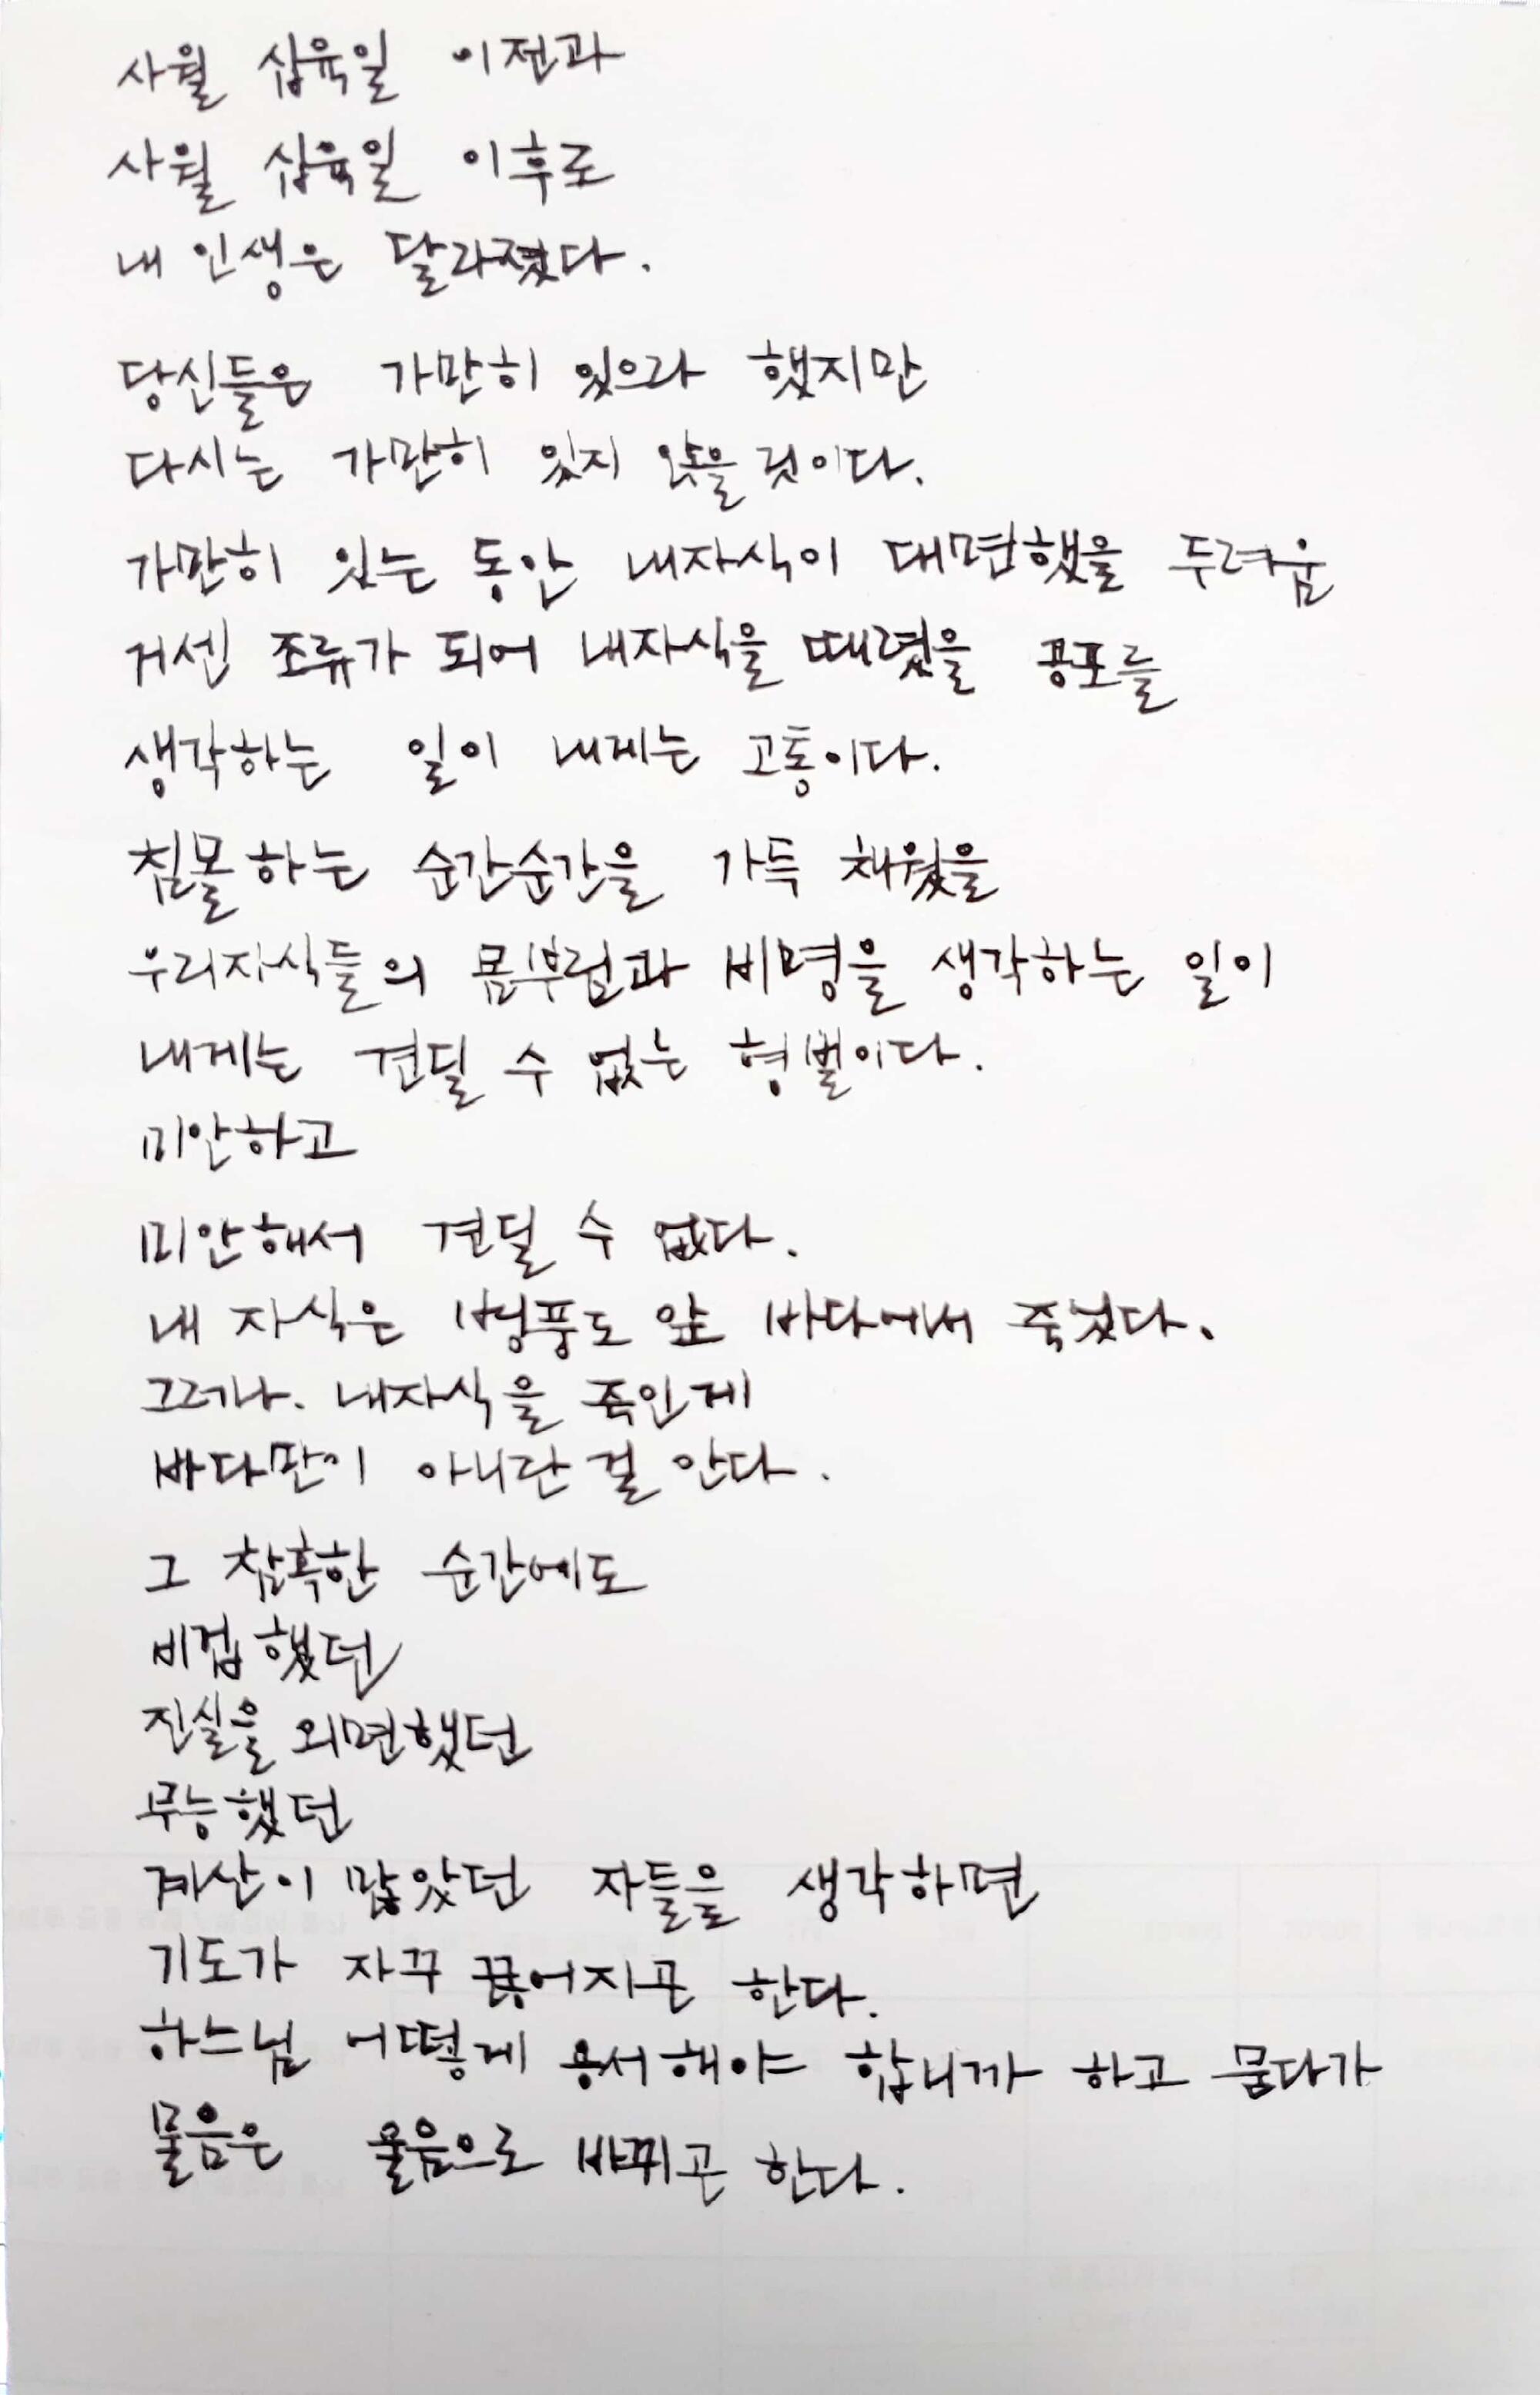 사월 십육일 이전과
사월 십육일 이후로
내 인생은 달라졌다.
당신들은 가만히 있으라 했지만
다시는 가만히 있지 않을 것이다.
가만히 있는 동안 내자식이 대면했을 두려움
거센 조류가 되어 내자식을 때렸을 공포를
생각하는 일이 내게는 고통이다.
침몰하는 순간순간을 가득 채웠을
우리자식들의 몸부림과 비명을 생각하는 일이
내게는 견딜 수 없는 형벌이다.
미안하고
미안해서 견딜 수 없다.
내 자식은 병풍도 앞 바다에서 죽었다.
그러나. 내자식을 죽인게
바다만이 아니란 걸 안다.
그 참혹한 순간에도
비겁했던
진실을 외면했던
무능했던
계산이 많았던 자들을 생각하면
기도가 자꾸 끊어지곤 한다.
하느님 어떻게 용서해야 합니까 하고 묻다가
물음은 울음으로 바뀌곤 한다.